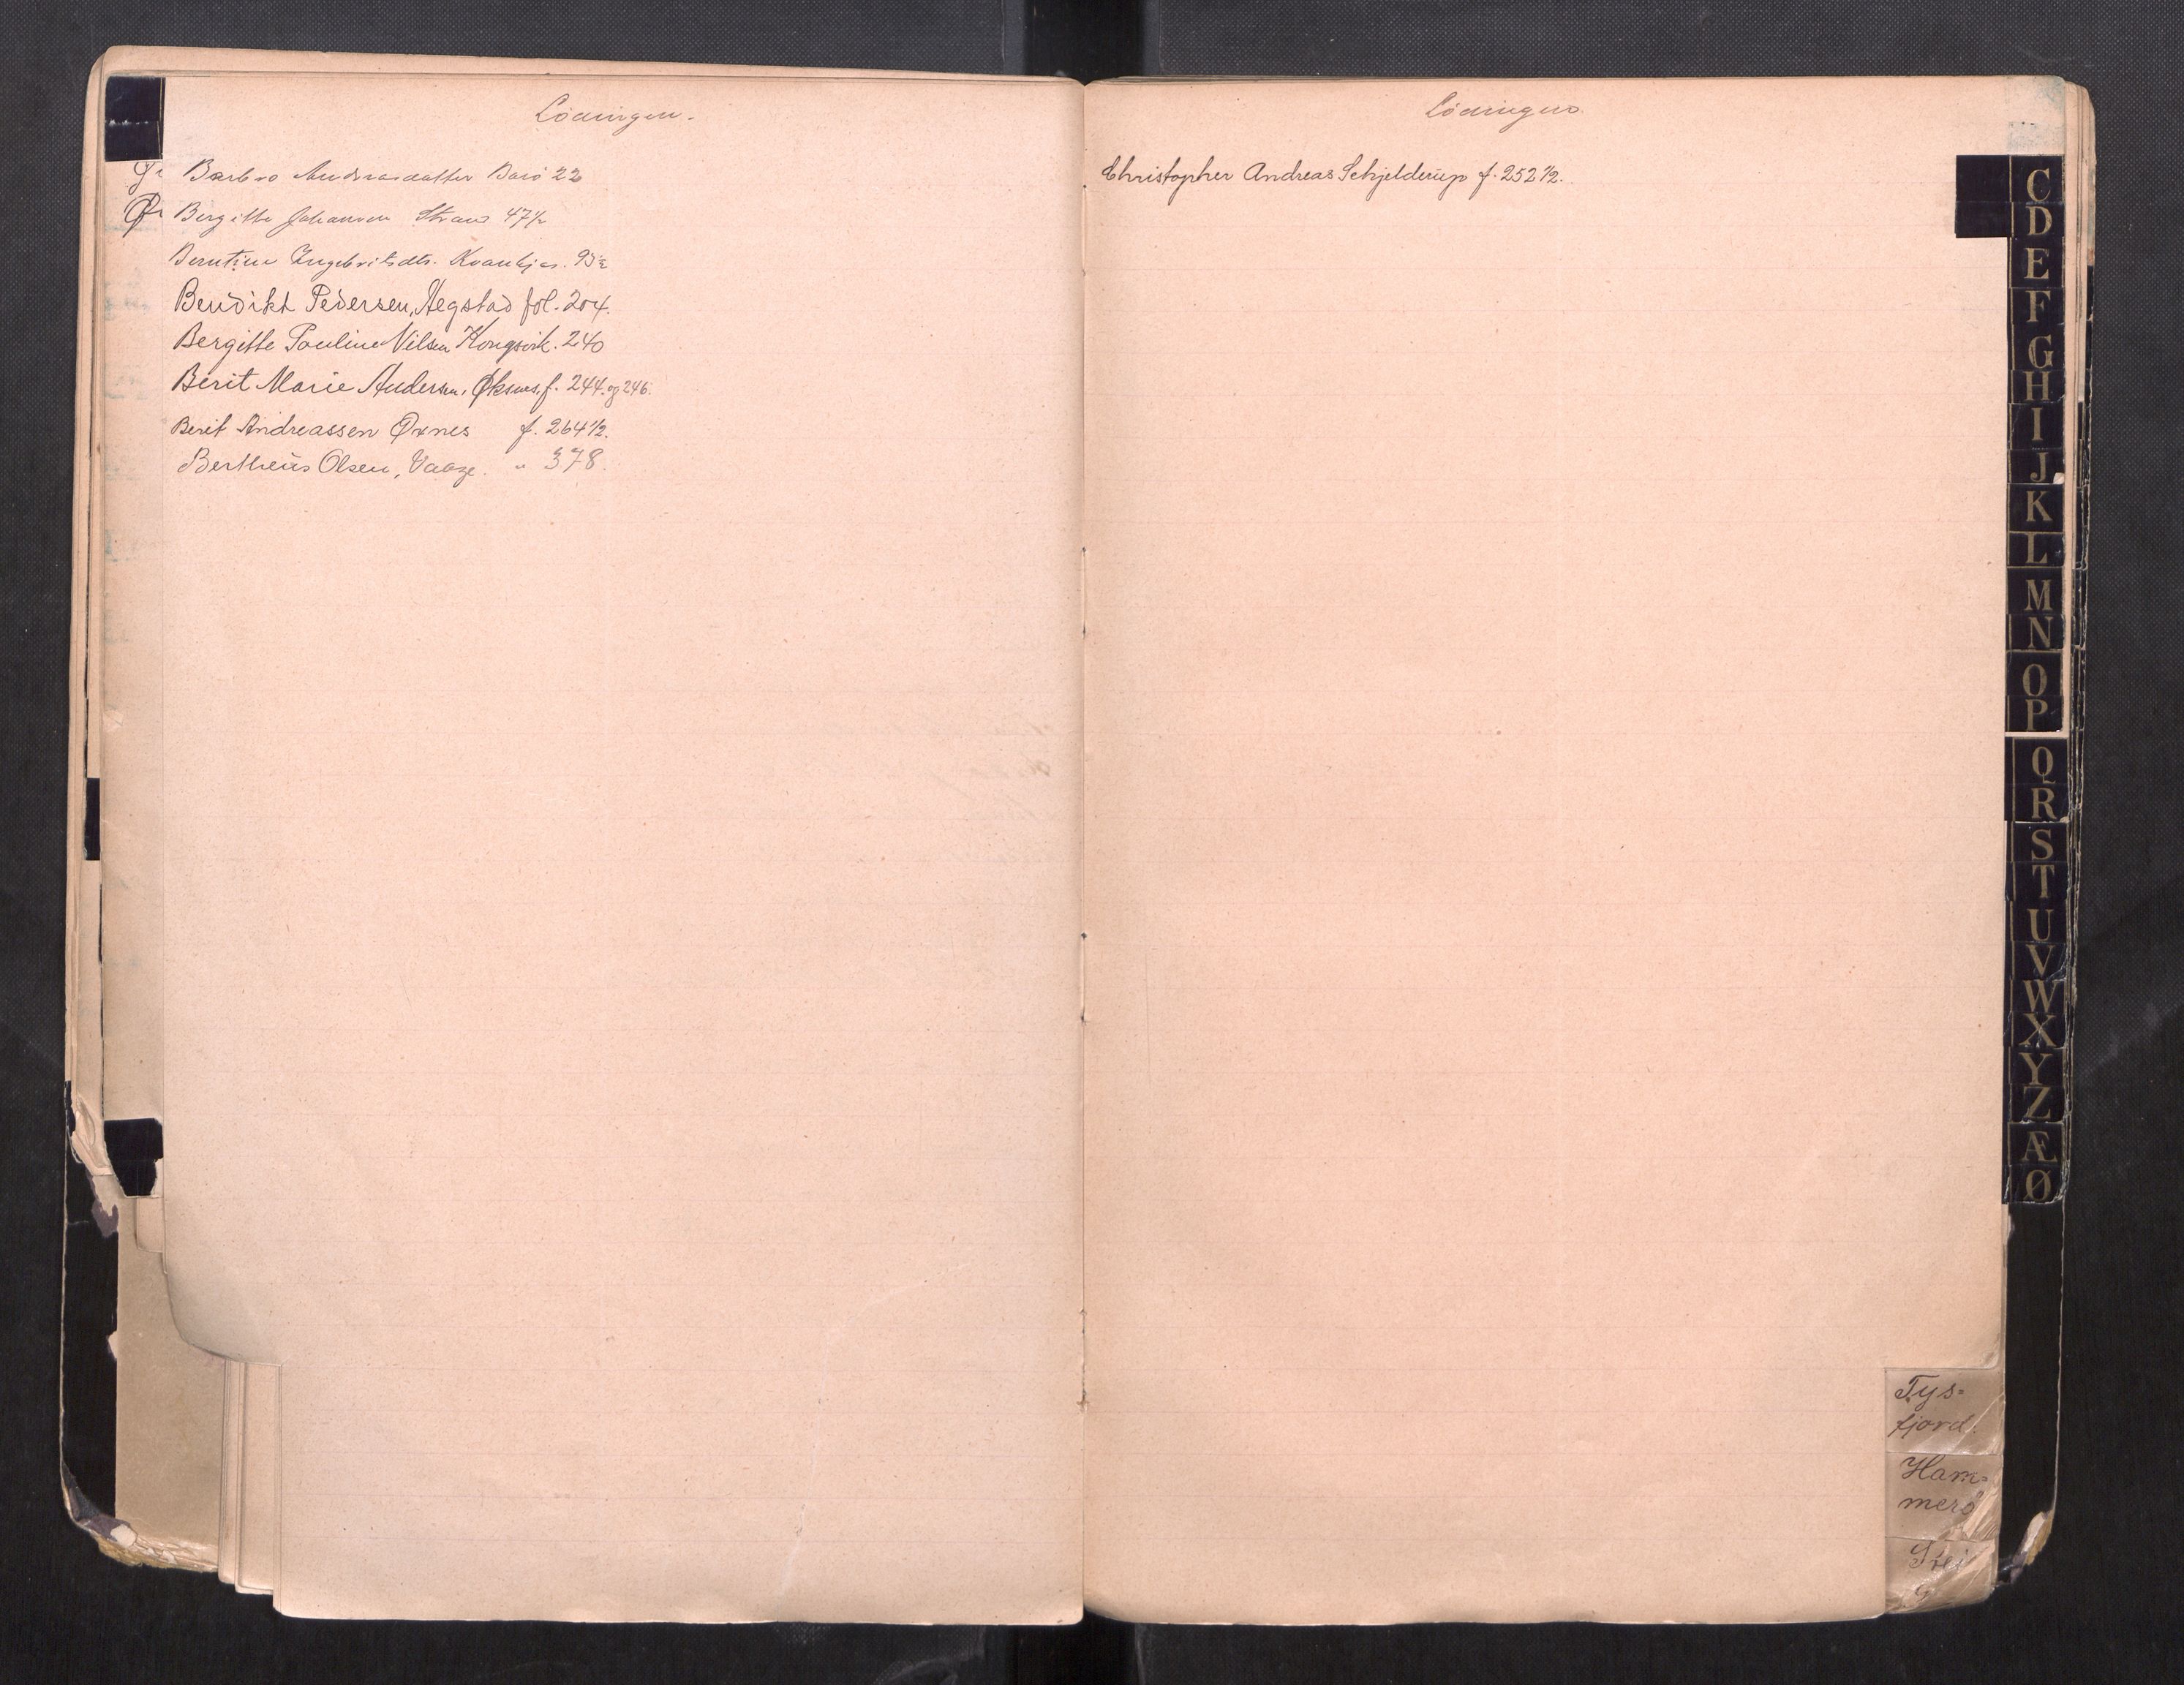 Lödingen.
Barbro Andreasdatter Barö 22
Bergitte Johansen Strand 47½
Berntine Ingebrigtsdtr. Kvankjos. 93½
Bendikt Pedersen, Hegstad fol. 204.
Bergitte Pauline Nilsen Kongsvik. 240
Berit Marie Andersen, Øksnes, f. 244. og 246.
Berit Andreassen Øxnes f. 264½.
Bertheüs Olsen, Vaage. " 378.
Lödingen
Christopher Andreas Schjelderup f. 252½.
C
D
E
F
G
H
I
J
K
L
M
N
O
P
Q
R
S
T
U
V
W
X
Y
Z
Æ
Ø
Tys=
fjord.
Ham=
merö